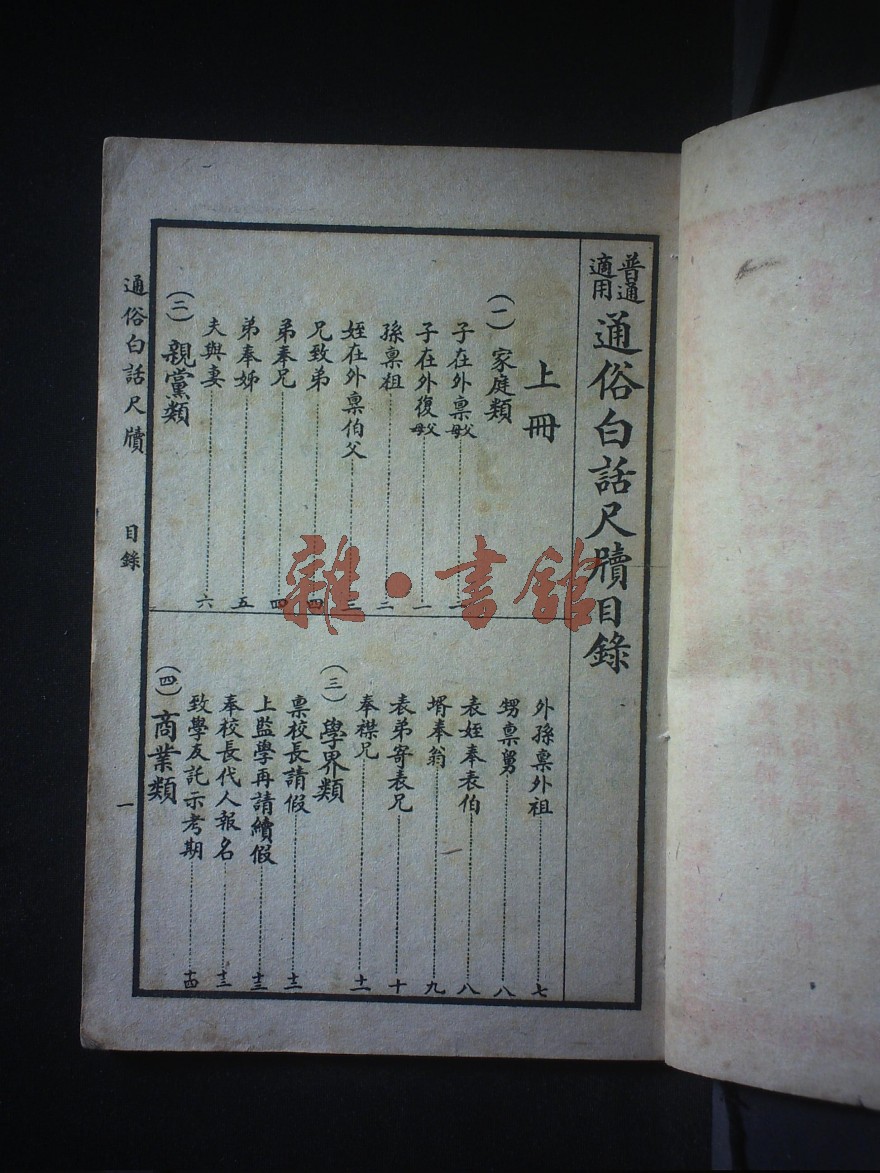 普通
適用
通俗白話尺牘目錄
上冊
(一) 家庭類
子在外稟父母
子在外復父母 一
孫稟祖 二
姪在外稟伯父 三
兄致弟 四
弟奉兄 四
弟奉姊 五
夫與妻 六
(二) 親黨類
外孫稟外祖 七
甥稟舅 八
表姪奉表伯 八
壻奉翁 九
表弟寄表兄 十
奉襟兄 十一
(三) 學界類
稟校長請假 十二
上監學再請續假 十三
奉校長代人報名 十三
致學友託示考期 十四
(四) 商業類
通俗白話尺牘 目錄 一
雜·書館